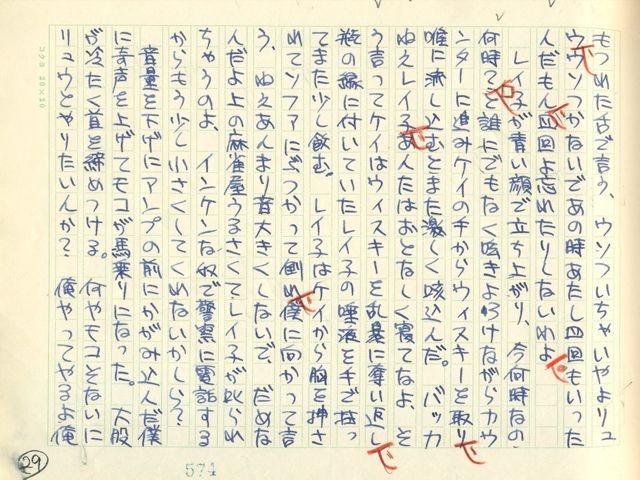 もつれた舌で言う、ウソついちゃいやよリュ
ウウソつかないであの時あたし四回もいった
んだもん四回よ忘れたりしないわよ
レイ子が青い顔で立ち上がり、今何時なの、
何時?と誰にでもなく呟きよろけながらカウ
ンターに進みケイの手からウィスキーを取り
喉に流し込むとまた激しく咳込んだ。バッカ
ねえレイ子あんたはおとなしく寝てなよ、そ
う言ってケイはウィスキーを乱暴に奪い返し
瓶の縁に付いていたレイ子の唾液を手で拭っ
てまた少し飲む。レイ子はケイから胸を押さ
れてソファにぶつかって倒れ僕に向かって言
う、ねえあんまり音大きくしないで、だめな
んだよ上の麻雀屋うるさくてレイ子が叱られ
ちゃうのよ、インケンな奴で警察に電話する
からもう少し小さくしてくれないかしら?
音量を下げにアンプの前にかがみ込んだ僕
に奇声を上げてモコが馬乗りになった。大股
が冷たく首を締めつける。何やモコそないに
リュウとやりたいんか?俺やってやるよ俺
コクヨ 20×20
29
574